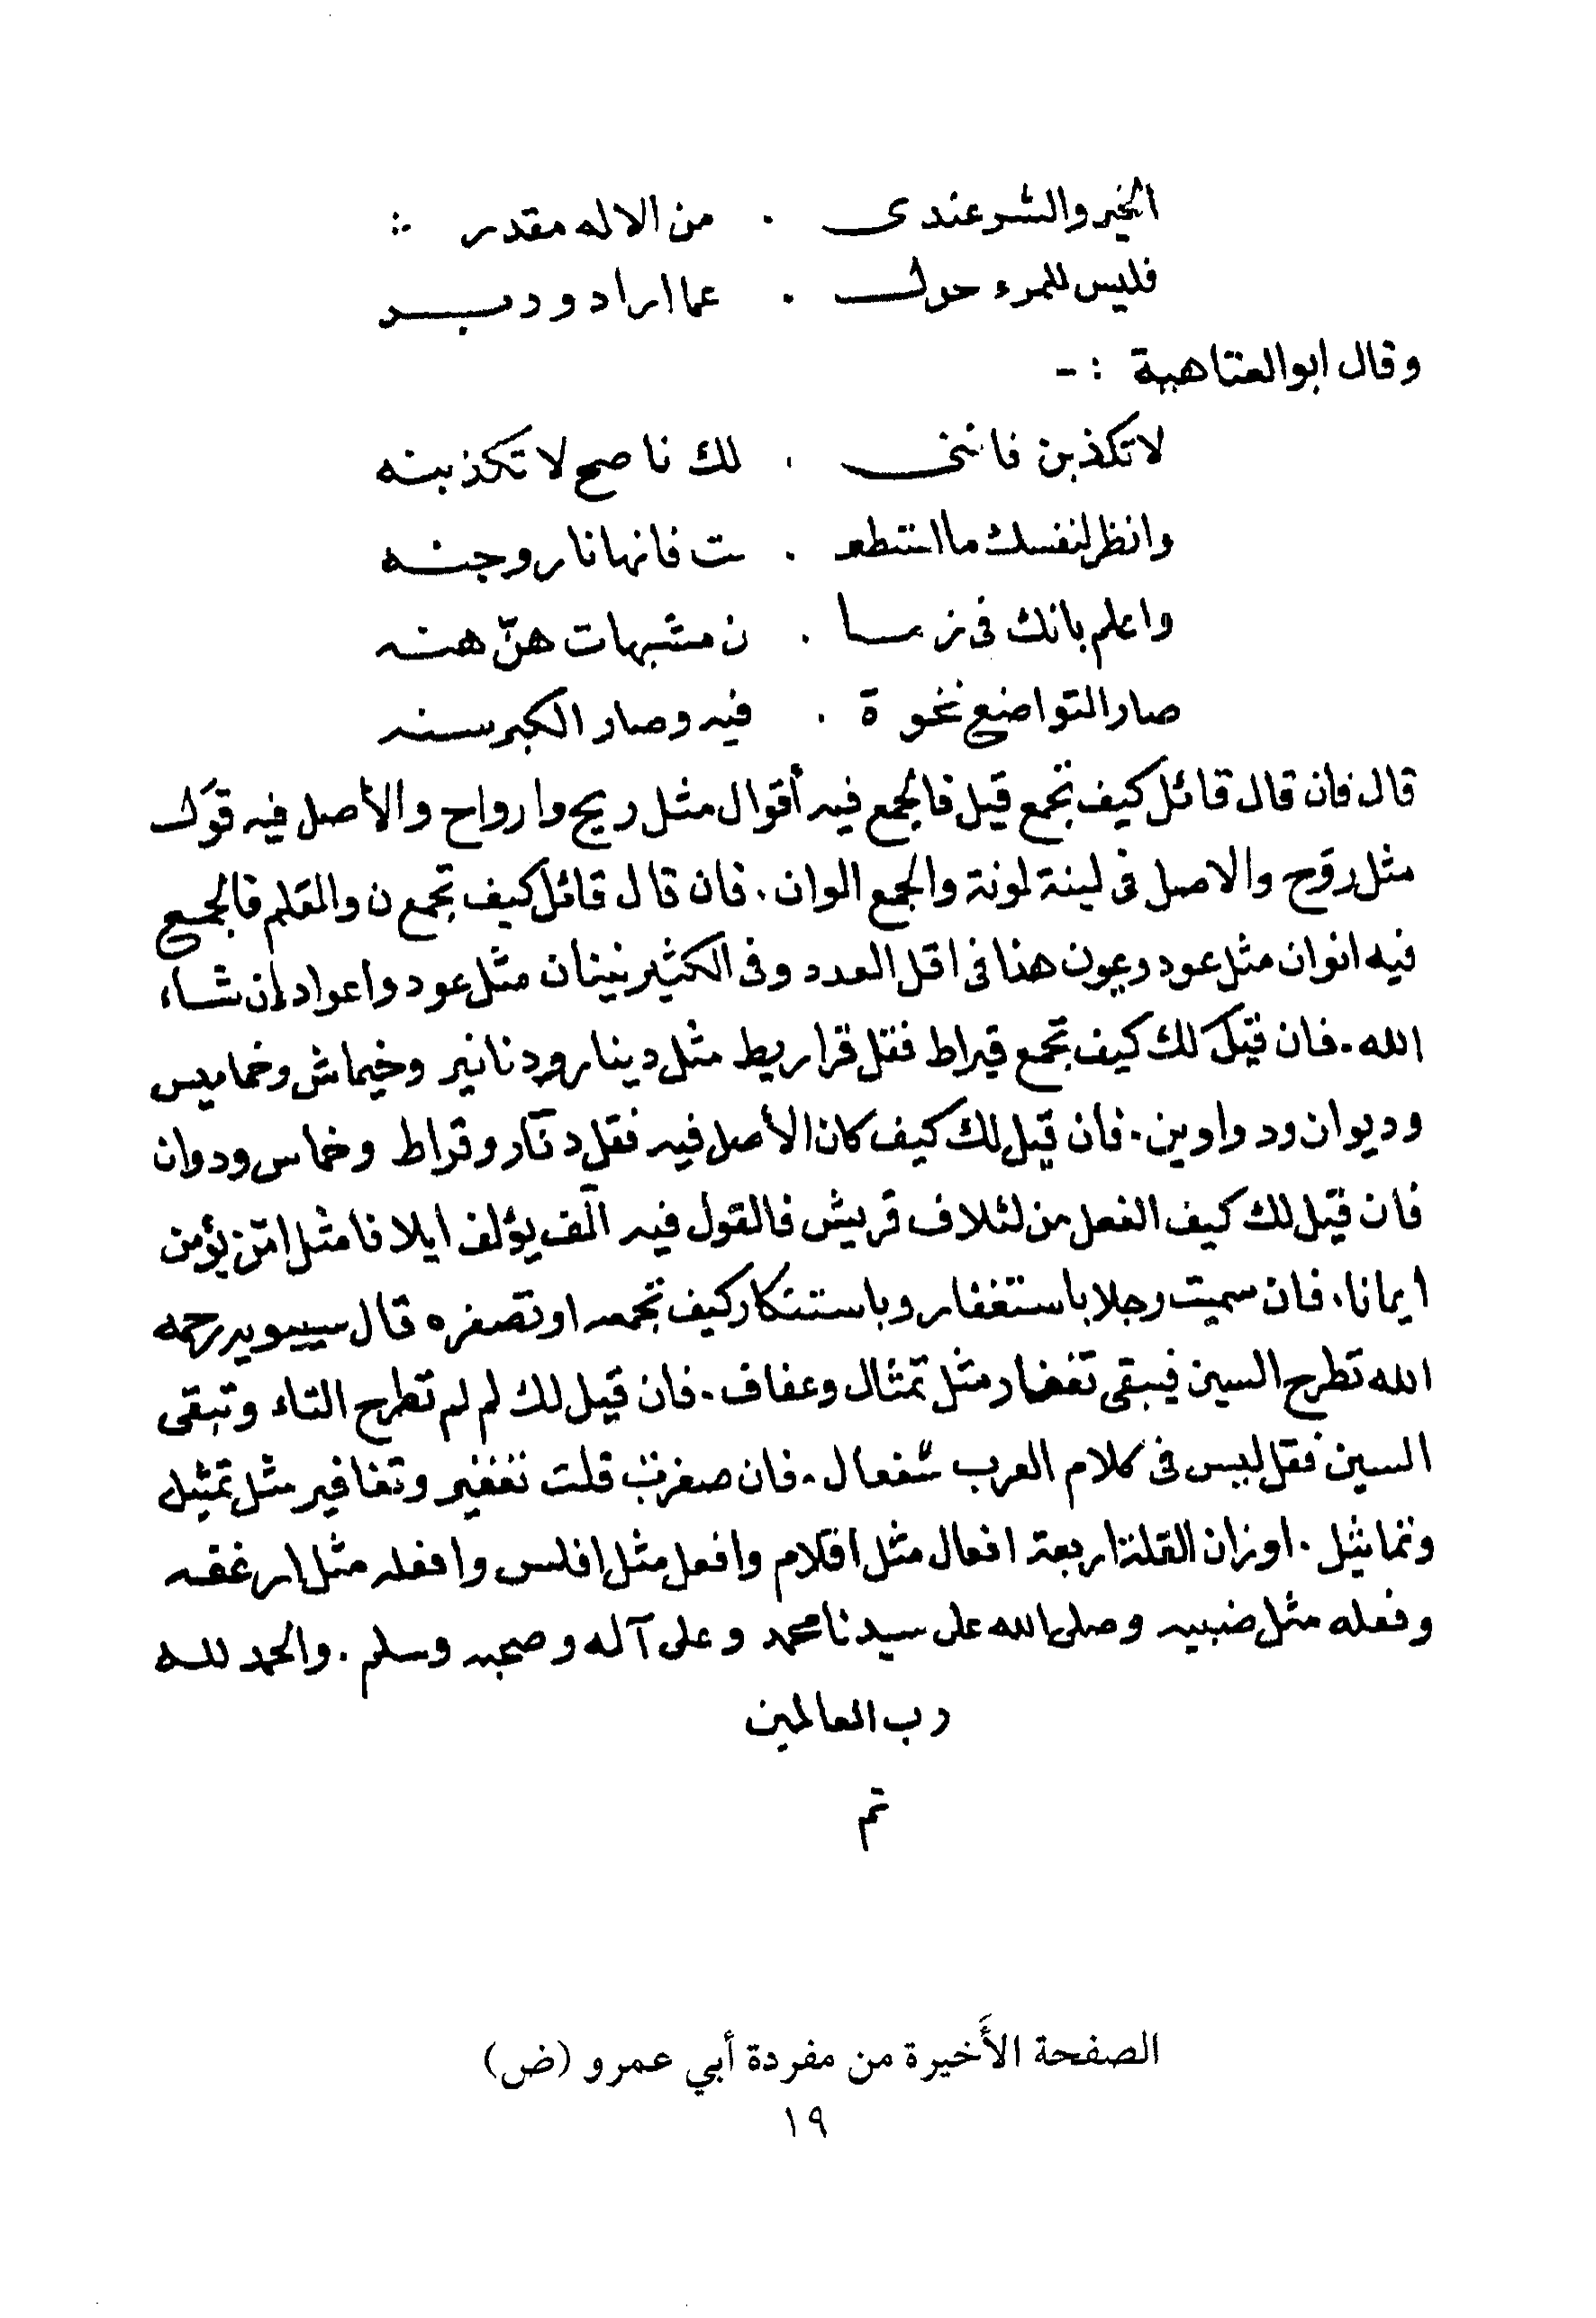 الخير والشر عندى . من الاله مقدر ::
فليس للمرء حول . عما اراد ودبر
وقال ابو العتاهية : -
لا تكذبن فاننى . لك ناصح لا تكذبنه
وانظر لنفسك ما استطعـ . ـت فانها نار وجنه
واعلم بانك فى زمـا . ن مشبهات هنّ هنه
صار التواضع نخوة . فيه وصار الكبر سنه
قال فان قال قائل كيف تجمع قيل فالجمع فيه أقوال مثل ريح وارواح والأصل فيه قوَل
مثل روَح والاصل فى لينة لونة والجمع الوان . فان قال قائل كيف تجمع ن والقلم فالجمع
فيه انوان مثل عود وعون هذا فى اقل العدد وفى الكثير نينان مثل عود واعواد إن شاء
الله . فان قيل لك كيف تجمع قيراط فقل قراريط مثل دينار ودنانير وخيماش وخماميس
وديوان ودواوين . فان قيل لك كيف كان الأصل فيه فقل دنّار وقراط وخماس ودوان
فان قيل لك كيف الفعل من لئلاف قريش فالقول فيه آلف يؤلف ايلافا مثل امن يؤمن
ايمانا . فان سميت رجلا باستغفار وباستنكار كيف تجمعه او تصغره قال سيبويه رحمه
الله تطرح السين فيبقى تغفار مثل تمثال وعفاف . فان قيل لك لم لم تطرح التاء وتبقى
السين فقل ليس فى كلام العرب سفعال . فان صغرت قلت تغفير وتغافير مثل تمثيل
وتماثيل . اوزان القلة اربعة افعال مثل اقلام وافعل مثل افلس وافعله مثل ارغفه
وفعله مثل صبيه وصلى الله على سيدنا محمد وعلى آله وصحبه وسلم . والحمد لله
رب العالمين
تم
الصفحة الأَخيرة من مفردة أبي عمرو (ض)
١٩